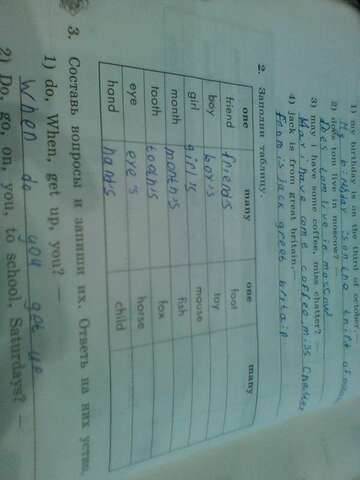 1) my birthday is on the third of october. —
My bithday is on the third of octob
2) does tom live in moscow? —
Does tom live in moscow
3) may i have some coffee, miss chatter? —
May i have come coffee, miss Chatter
4) jack is from great britain. —
from is jack great britain
2. Заполни таблицу.
one many one many
friend friend's foot
boy boy's toy
girl girl's mouse
month month's fish
tooth tooth's fox
eye eye's horse
hand hand's child
3. Составь вопросы и запиши их. Ответь на них устно.
1) do, When, get up, you?
When do you get up
2) Do, go, on, you, to school, Saturdays? —